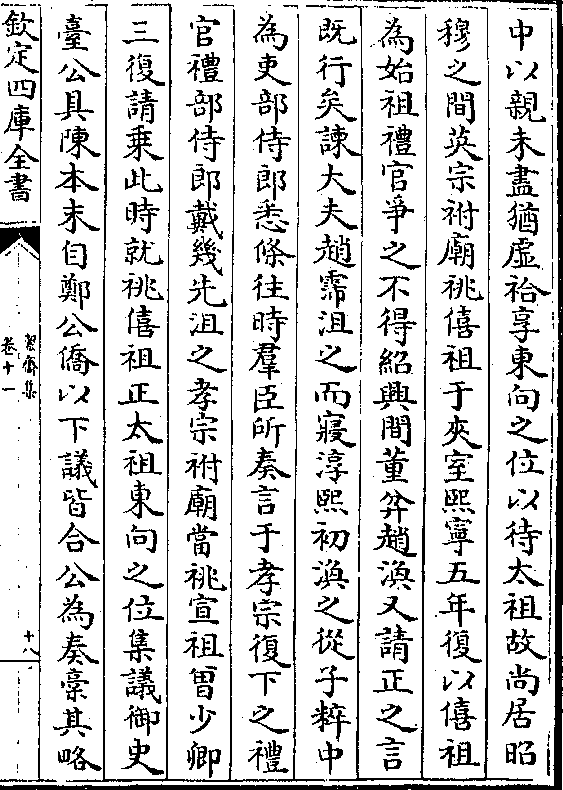 中以親未盡猶虛祫享東向之位以待太祖故尚居昭
穆之間英宗祔廟祧僖祖于夾室熙寧五年復以僖祖
為始祖禮官爭之不得紹興間董弅趙渙又請正之言
既行矣諫大夫趙霈沮之而寢淳熙初渙之從子粹中
為吏部侍郎悉條往時羣臣所奏言于孝宗復下之禮
官禮部侍郎戴幾先沮之孝宗祔廟當祧宣祖曾少卿
三復請乗此時就祧僖祖正太祖東向之位集議御史
臺公具陳本末自鄭公僑以下議皆合公為奏稾其略
欽定四庫全書
絜齋集
卷十一
十八